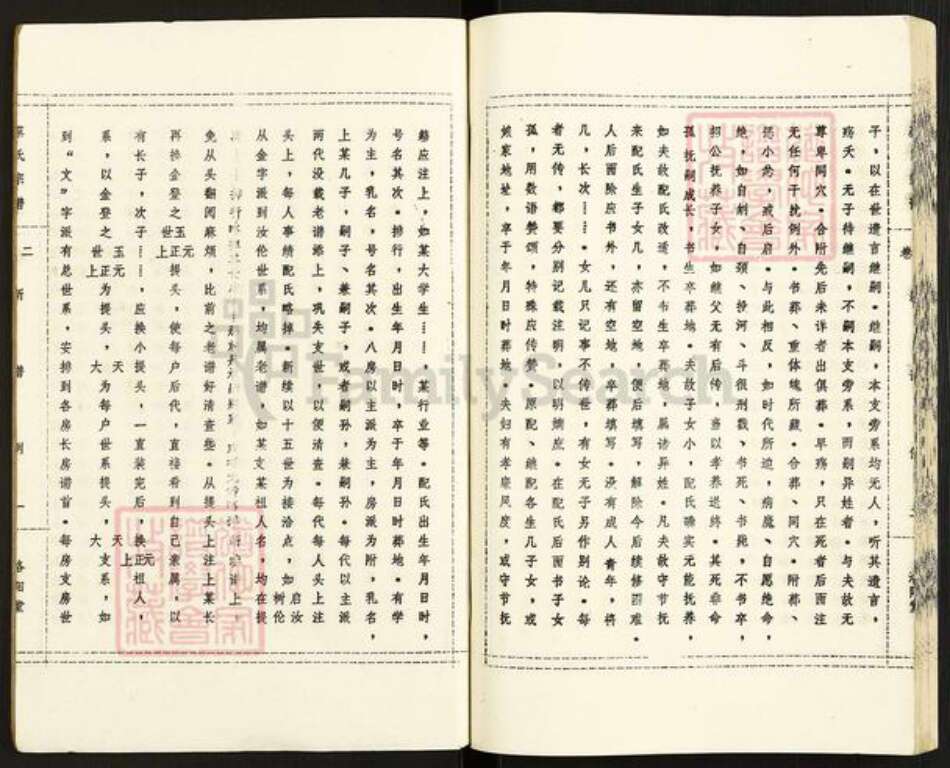 子，以在世遗言继嗣。继嗣，本支旁系均无人，听其遗言，
殇夭。无子待继嗣，不嗣本支旁系，而嗣异姓者。与夫故无
尊卑同穴。合附先后未详者出俱葬。早殇，只在死者后面注
无任何干扰例外。书葬、重体魄所藏。合葬、同穴。附葬、
惩小忿，戒后启。与此相反，如时代所迫，病魔、自愿绝命，
绝，如自刎、自颈、投河、斗很刑戮、书死、书毙，不书卒，
招公抚养子女，如继父无有后传，当以孝养送终。其死非命
孤抚嗣成长，书生卒葬地。夫故子女小，配氏确实无能抚养，
如夫故配氏改适，不书生卒葬地，属诸异姓。凡夫故守节抚
来配氏生子女几，亦留空地，便后填写，解除今后续修困难。
人后面除应书外，还有留空地，卒葬填写。没有成人青年，将
几，长次……。女儿只记事不传世，有女无子另作别论。每
者无传，都要分别记载注明，以明嫡庶。在配氏后面书子女
孤，用数语赞颂，特殊应传赞。原配、继配各生几子女，或
娘家地址，卒于年月日时葬地。夫妇有孝廉风度，或守节抚
籍应注上，如某大学生……某行业等。配氏出生年月日时，
号名其次。排行，出生年月日时，卒于年月日时葬地。有学
为主，乳名，号名其次。八房以主派为主，房派为附，乳名，
上某几子，嗣子、兼嗣子，或者嗣孙，兼嗣孙。每代以主派
两代没载老谱添上，巩失支世，以便清查。每代每人头上注
头上，每人事绩配氏略掉。新续以十五世为接洽点，如启汝树伦
从金字派到汝伦世系，均属老谱，如某支某祖人名，均在提
免从头翻阅麻烦，比前之老谱好清查些。从提头上注上某长
再换金登之世上玉正元提头，使每户后代，直接看到自己亲属，以
有长子，次子……，应换小提头，一直装完后，换上正元祖人，
系，以金登之世上玉正元为提头，大天为每户世系提头，大天支系，如
到“文”字派有总世系，安排到各房长房谱首。每房支房世
氏宗谱 二 新谱例 一 洛阳堂
FamilySearch